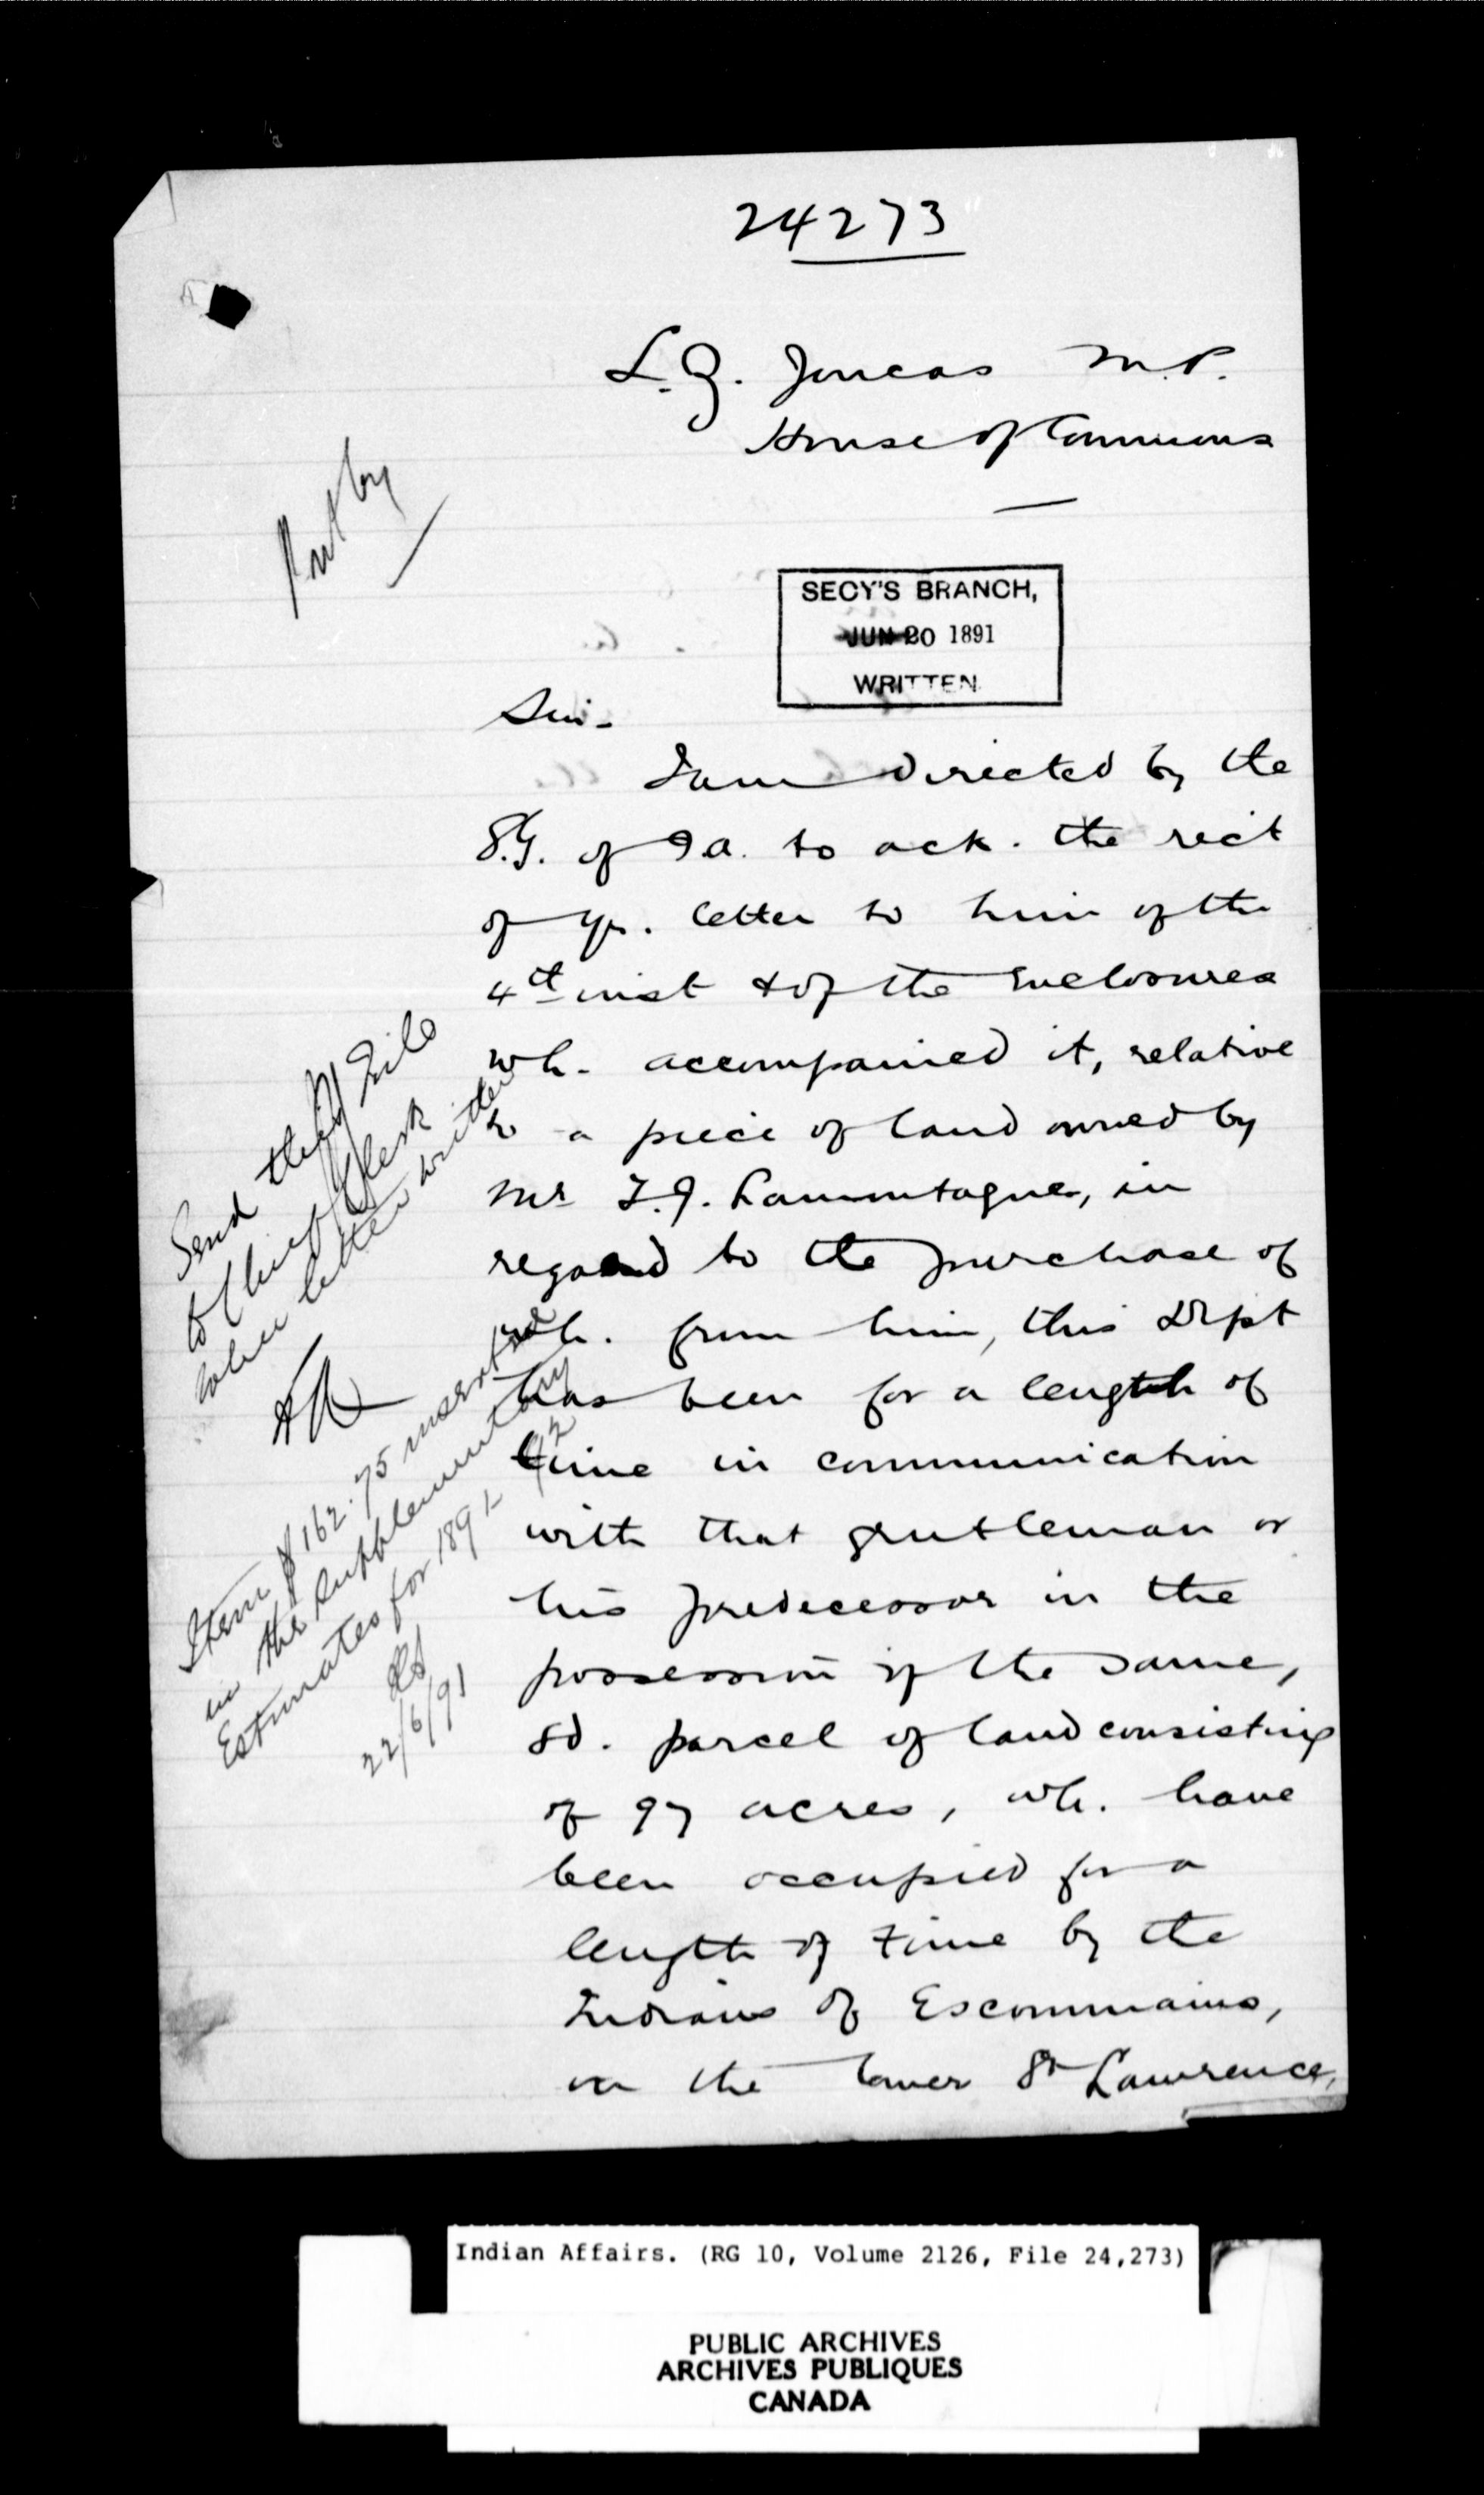 24273
L.Z. Joncas M.P.
House of Commons
Put by
SECY'S BRANCH,
JUN 20 1891
WRITTEN
Sir-
I am directed by the
S.G. of I.A. to ack. the rec't
of yr. letter to him of the
4th inst & of the enclosures
wh. accompanied it, relative
to a piece of land owned by
Mr T.J. Lamontagne, in
regard to the purchase of
wh. from him, this Dept
has been for a length of
time in communication
with that gentleman or
his predecessor in the
possession of the same,
sd. parcel of land consisting
of 97 acres, wh. have
been occupied for a
length of time by the
Indians of Escoumains,
on the lower St Lawrence,
Send this File
to Chief Clerk
when letter written
Item $162.75 inserted
in the Supplementary
Estimates for 1891-92
22/6/91
Indian Affairs. (RG 10, Volume 2126, File 24,273)
PUBLIC ARCHIVES
ARCHIVES PUBLIQUES
CANADA